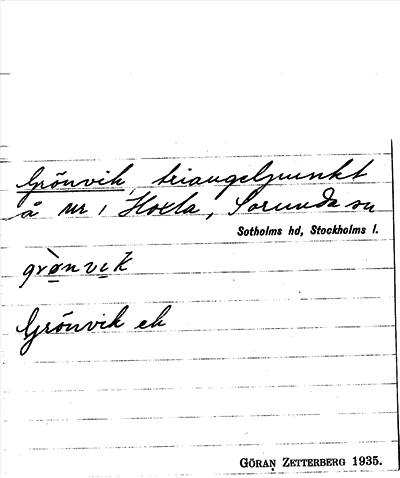 Grönvik, triangelpunkt
å nr 1 Hoxla, Sorunda sn
Sotholms hd, Stockholms l.
grø̀nvik
Grönvik ek
GÖRAN ZETTERBERG 1935.